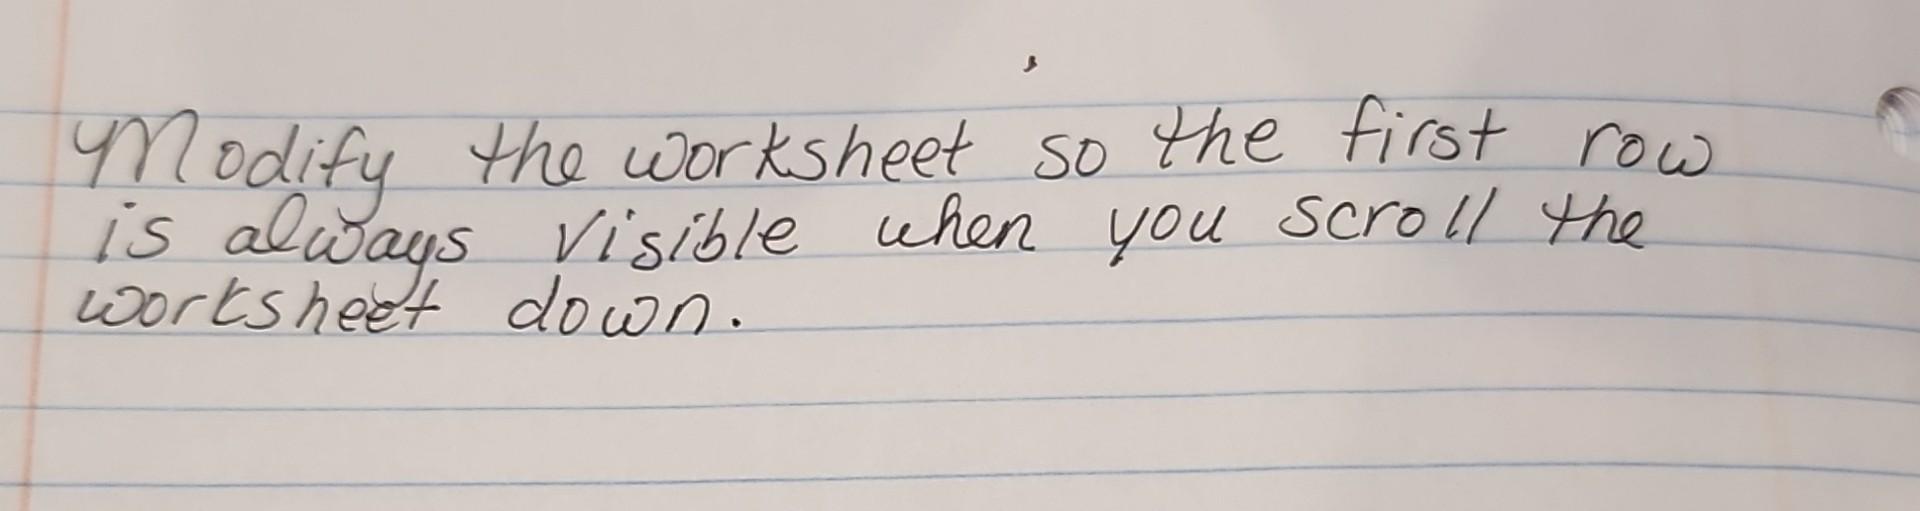 Modify the worksheet so the first row
is always visible when you scroll the
worksheet down.